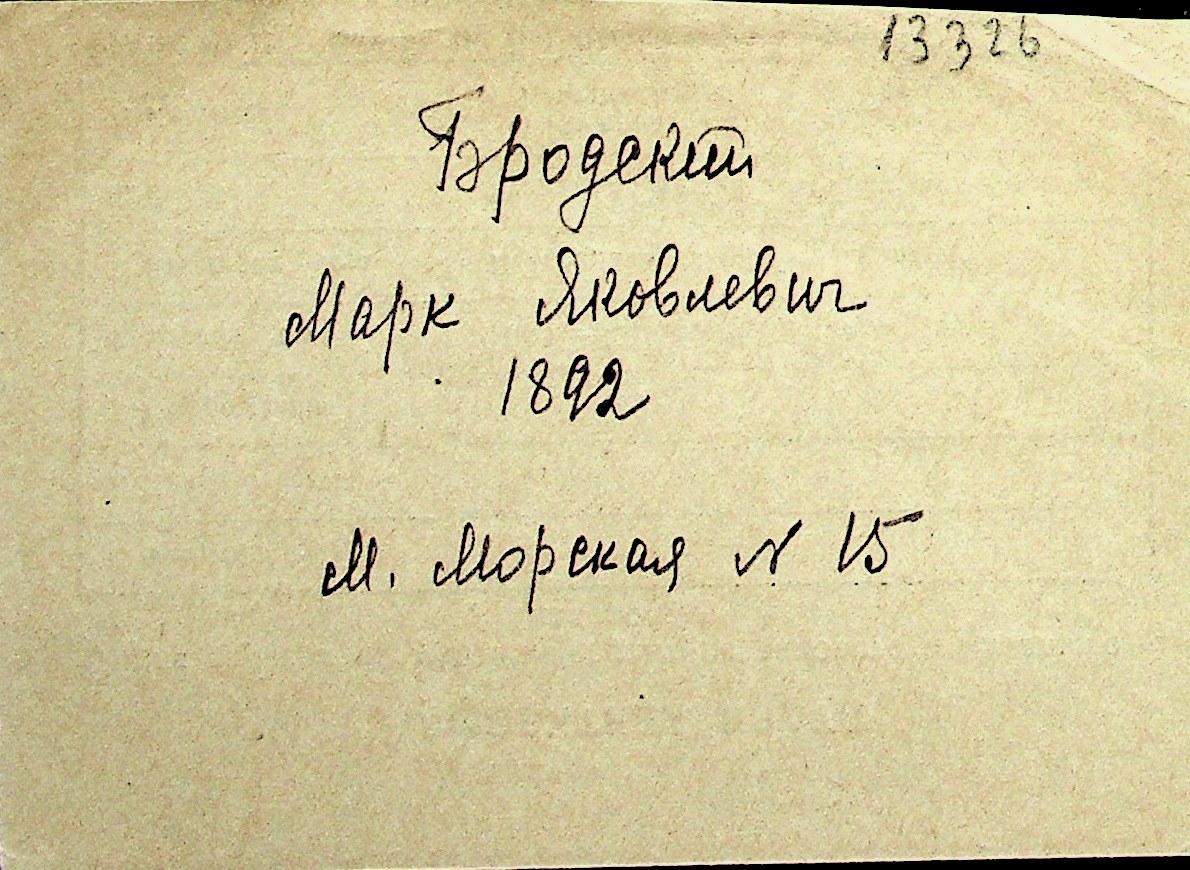 13326
Бродский
Марк Яковлевич
1892
М. Морская № 15